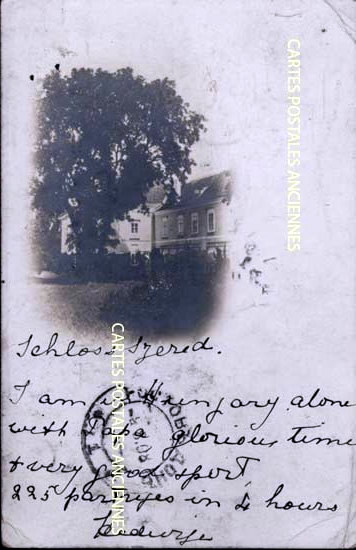 CARTES POSTALES ANCIENNES
Schloss Szered.
I am in Hungary alone
with Papa glorious time
& very good sport,
225 partridges in 4 hours
CARTES POSTALES ANCIENNES